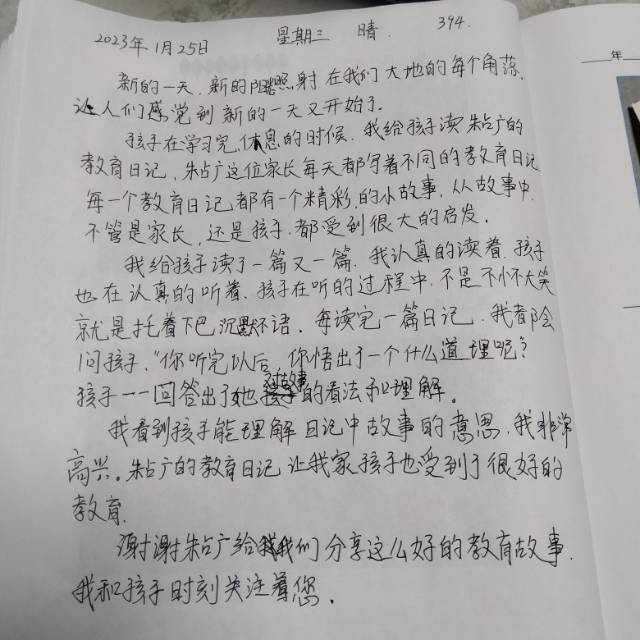 2023年1月25日 星期三 晴. 394.
新的一天,新的阳光照射在我们大地的每个角落,
让人们感觉到新的一天又开始了.
孩子在学习完,休息的时候,我给孩子读朱占广的
教育日记,朱占广这位家长每天都写着不同的教育日记
每一个教育日记都有一个精彩的小故事,从故事中,
不管是家长,还是孩子,都受到很大的启发.
我给孩子读了一篇又一篇,我认真的读着,孩子
也在认真的听着,孩子在听的过程中,不是不小不大笑
就是托着下巴沉默不语.每读完一篇日记,我都会
问孩子,“你听完以后,你悟出了一个什么道理呢?
孩子一一回答出了她对故事的看法和理解.
我看到孩子能理解日记中故事的意思,我非常
高兴.朱占广的教育日记让我家孩子也受到了很好的
教育.
谢谢朱占广给我们分享这么好的教育故事.
我和孩子时刻关注着您.
年